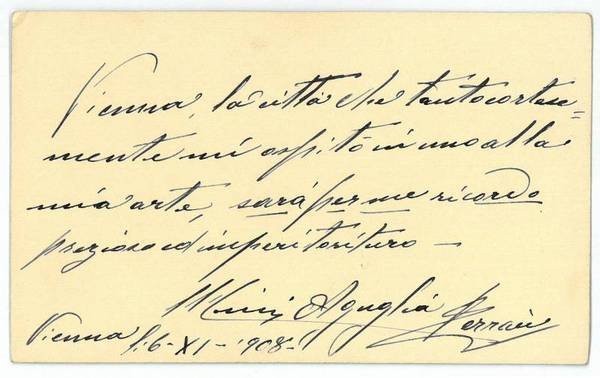 Vienna, la città che tanto cortese=
mente mi ospitò in uno alla
mia arte, sarà per me ricordo
prezioso ed imperituro —
Mimi Aguglia Ferraù
Vienna li 6-XI-1908-